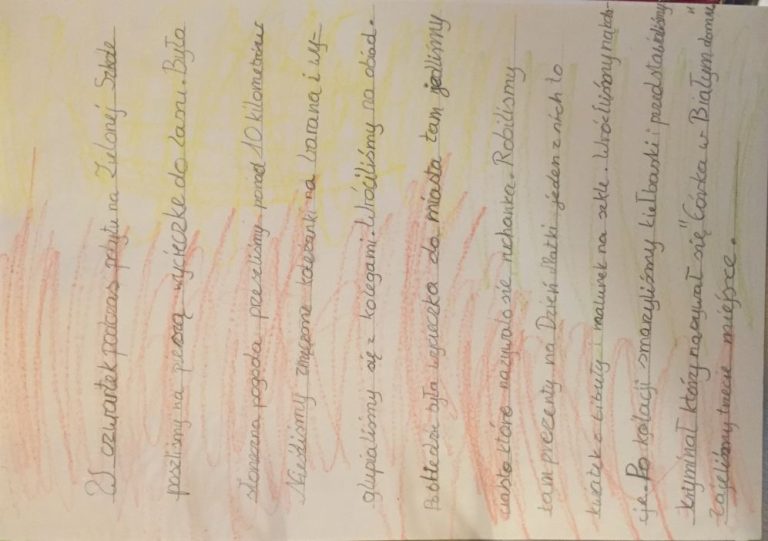 W czwartek podczas pobytu na Zielonej Szkole
poszliśmy na pieszą wycieczkę do lasu. Była
słoneczna pogoda przeszliśmy ponad 10 kilometrów
Nieśliśmy zmęczone koleżanki na barana i wy-
głupialiśmy się z kolegami. Wróciliśmy na obiad.
Po obiedzie była wycieczka do miasta tam jedliśmy
ciasto które nazywało się ruchanka. Robiliśmy
tam prezenty na Dzień Matki jeden z nich to
kwiatek z bibuły i malunek na szkle. Wróciliśmy na kola-
cje. Po kolacji smarzyliśmy kiełbaski i przedstawialiśmy
kryminał który nazywał się "Córka w Białym domu"
Zajeliśmy trzecie miejsce.